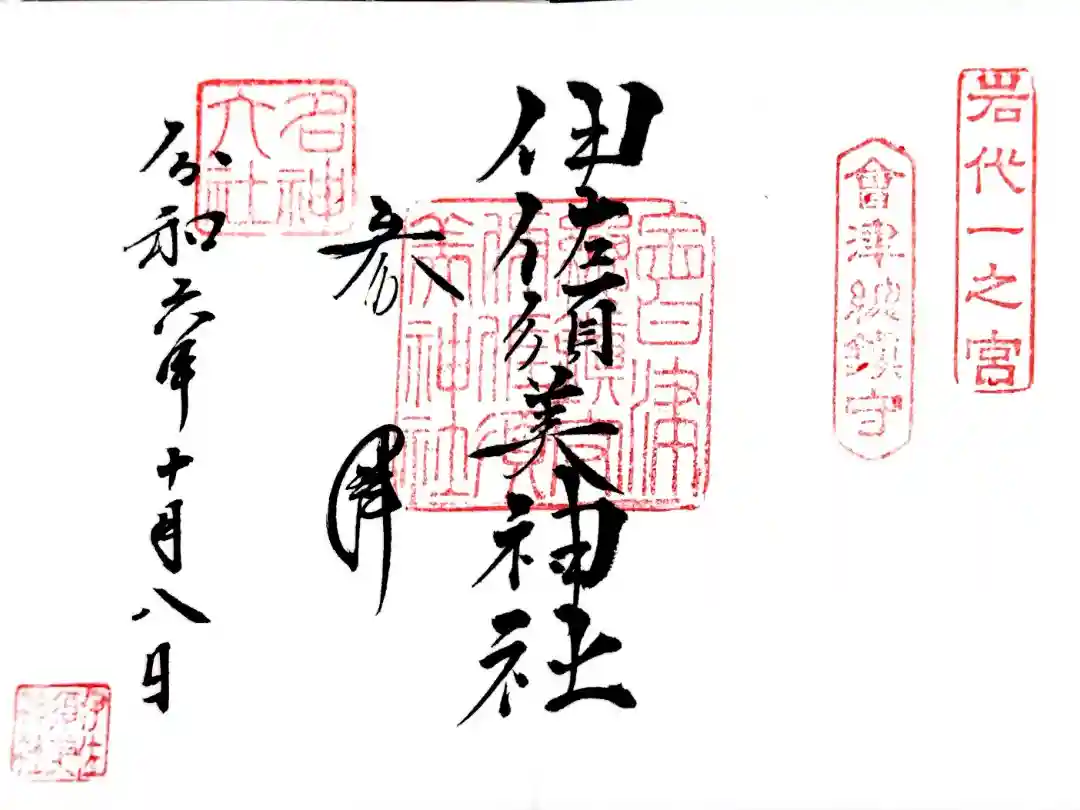 岩代一之宮
會津總鎮守
會津
總鎮守
伊佐須
美神社
伊佐須美神社
奉拝
名神
大社
令和六年十月八日